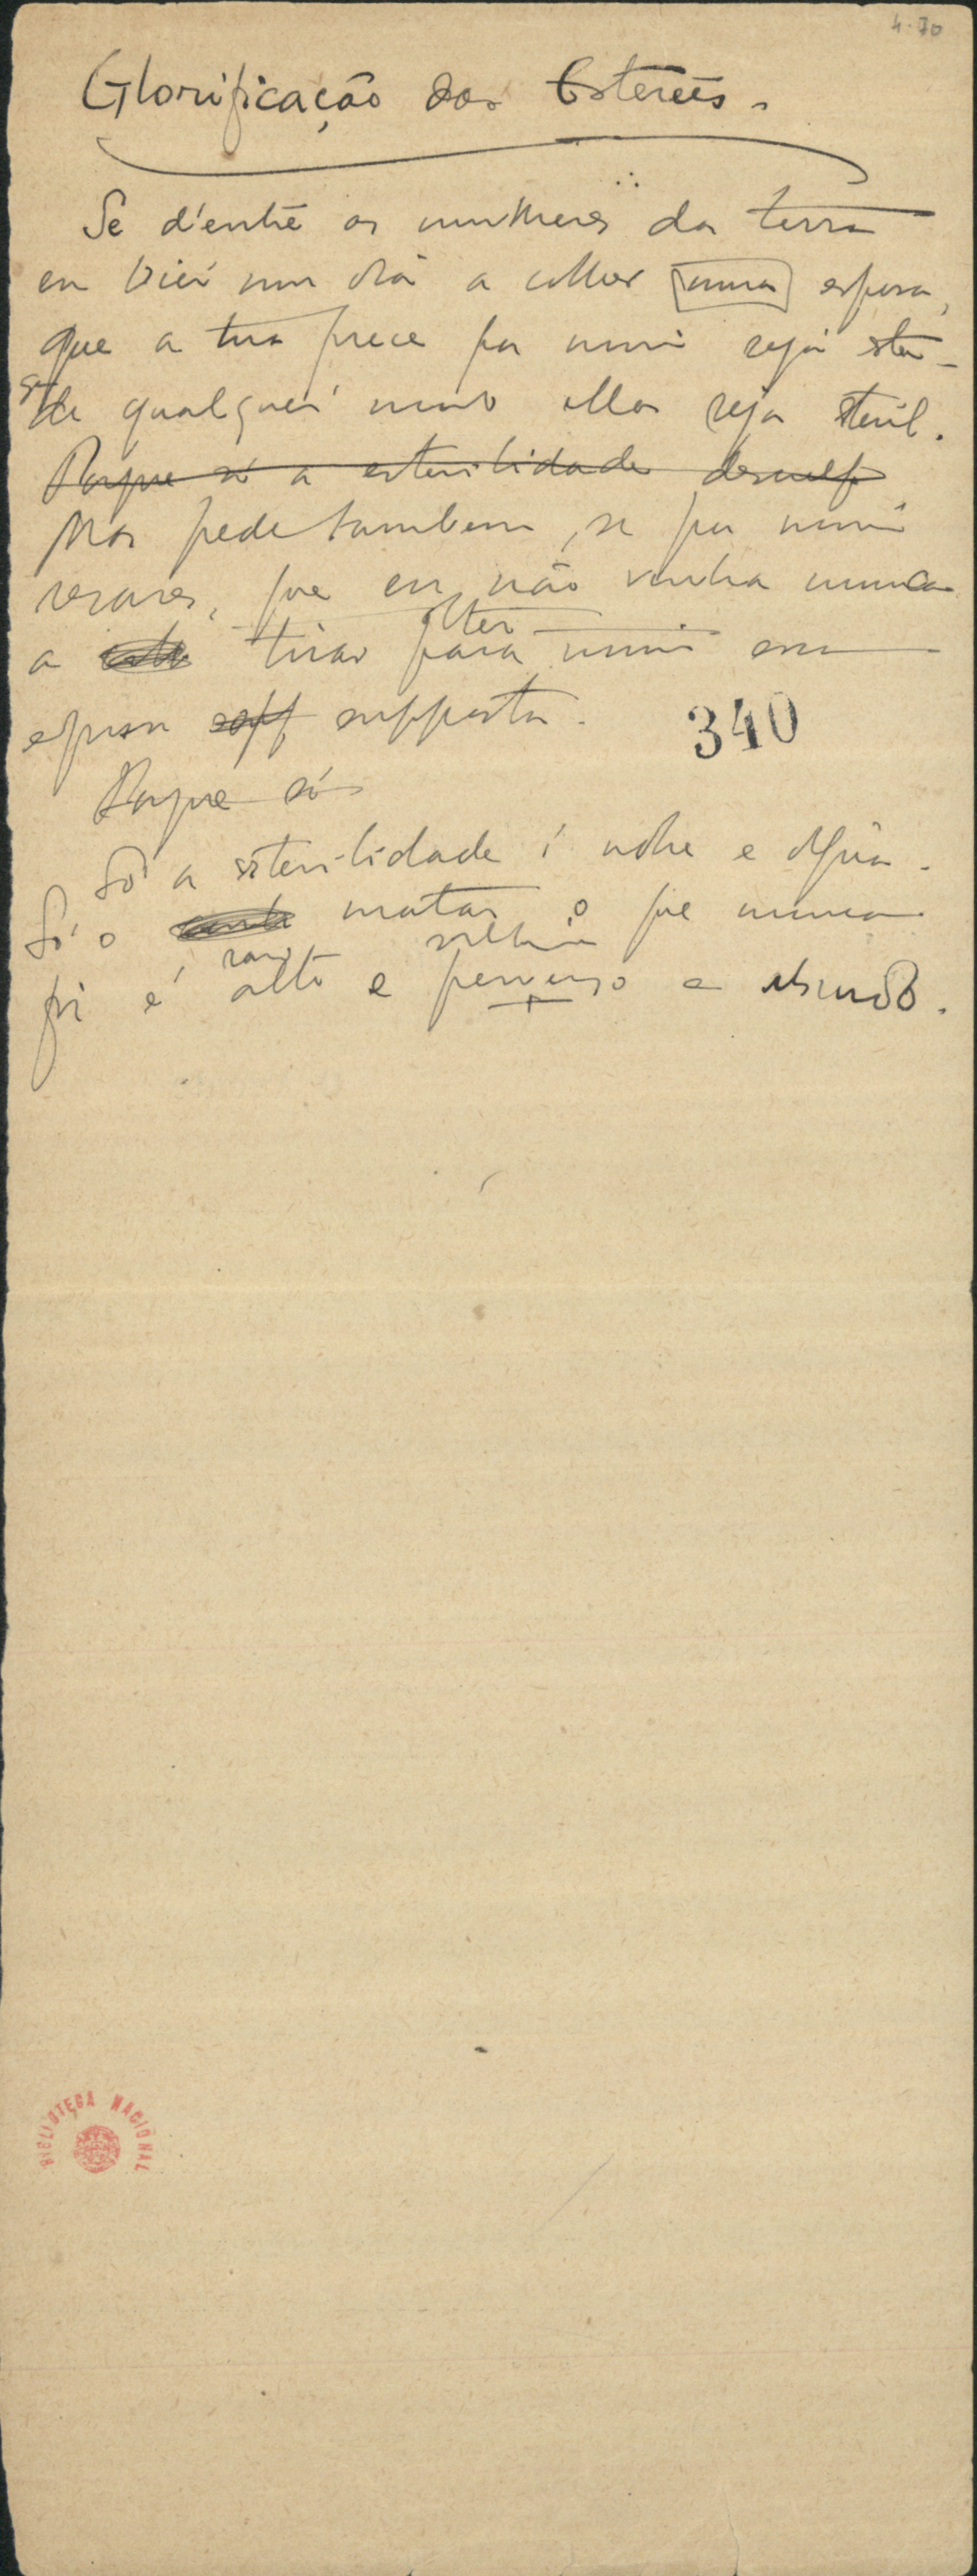 4-70
Glorificação das Estereis.
Se d'entre as mulheres da terra
eu vier um dia a colher uma esposa,
que a tua prece por mim seja esta —
que de qualquer modo ella seja steril.
Porque só a esterilidade
Mas pede tambem, se por mim
resares, que eu não venha nunca
obter
a tirar para mim essa
esposa supposta.
Porque só
Só a esterilidade é nobre e digna.
Só o matar o que nunca
raro
foi é alto e perverso e absurdo.
340
BIBLIOTECA NACIONAL